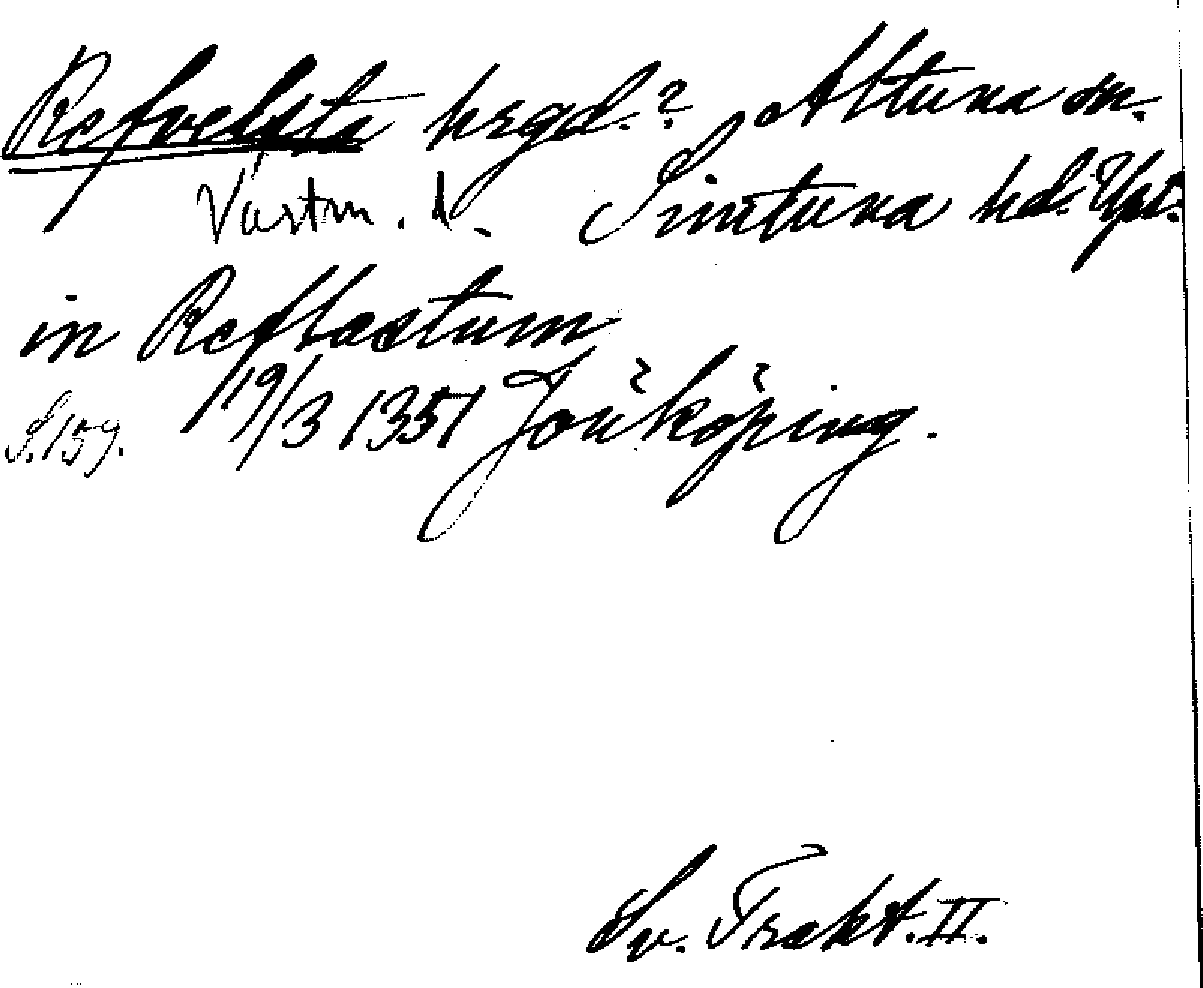 Refvelsta hrgd.? Altuna sn.
Västm. l. Simtuna hd. Upl.
in Reflastum
19/3 1351 Jönköping.
S. 159.
Sv. Trakt. II.